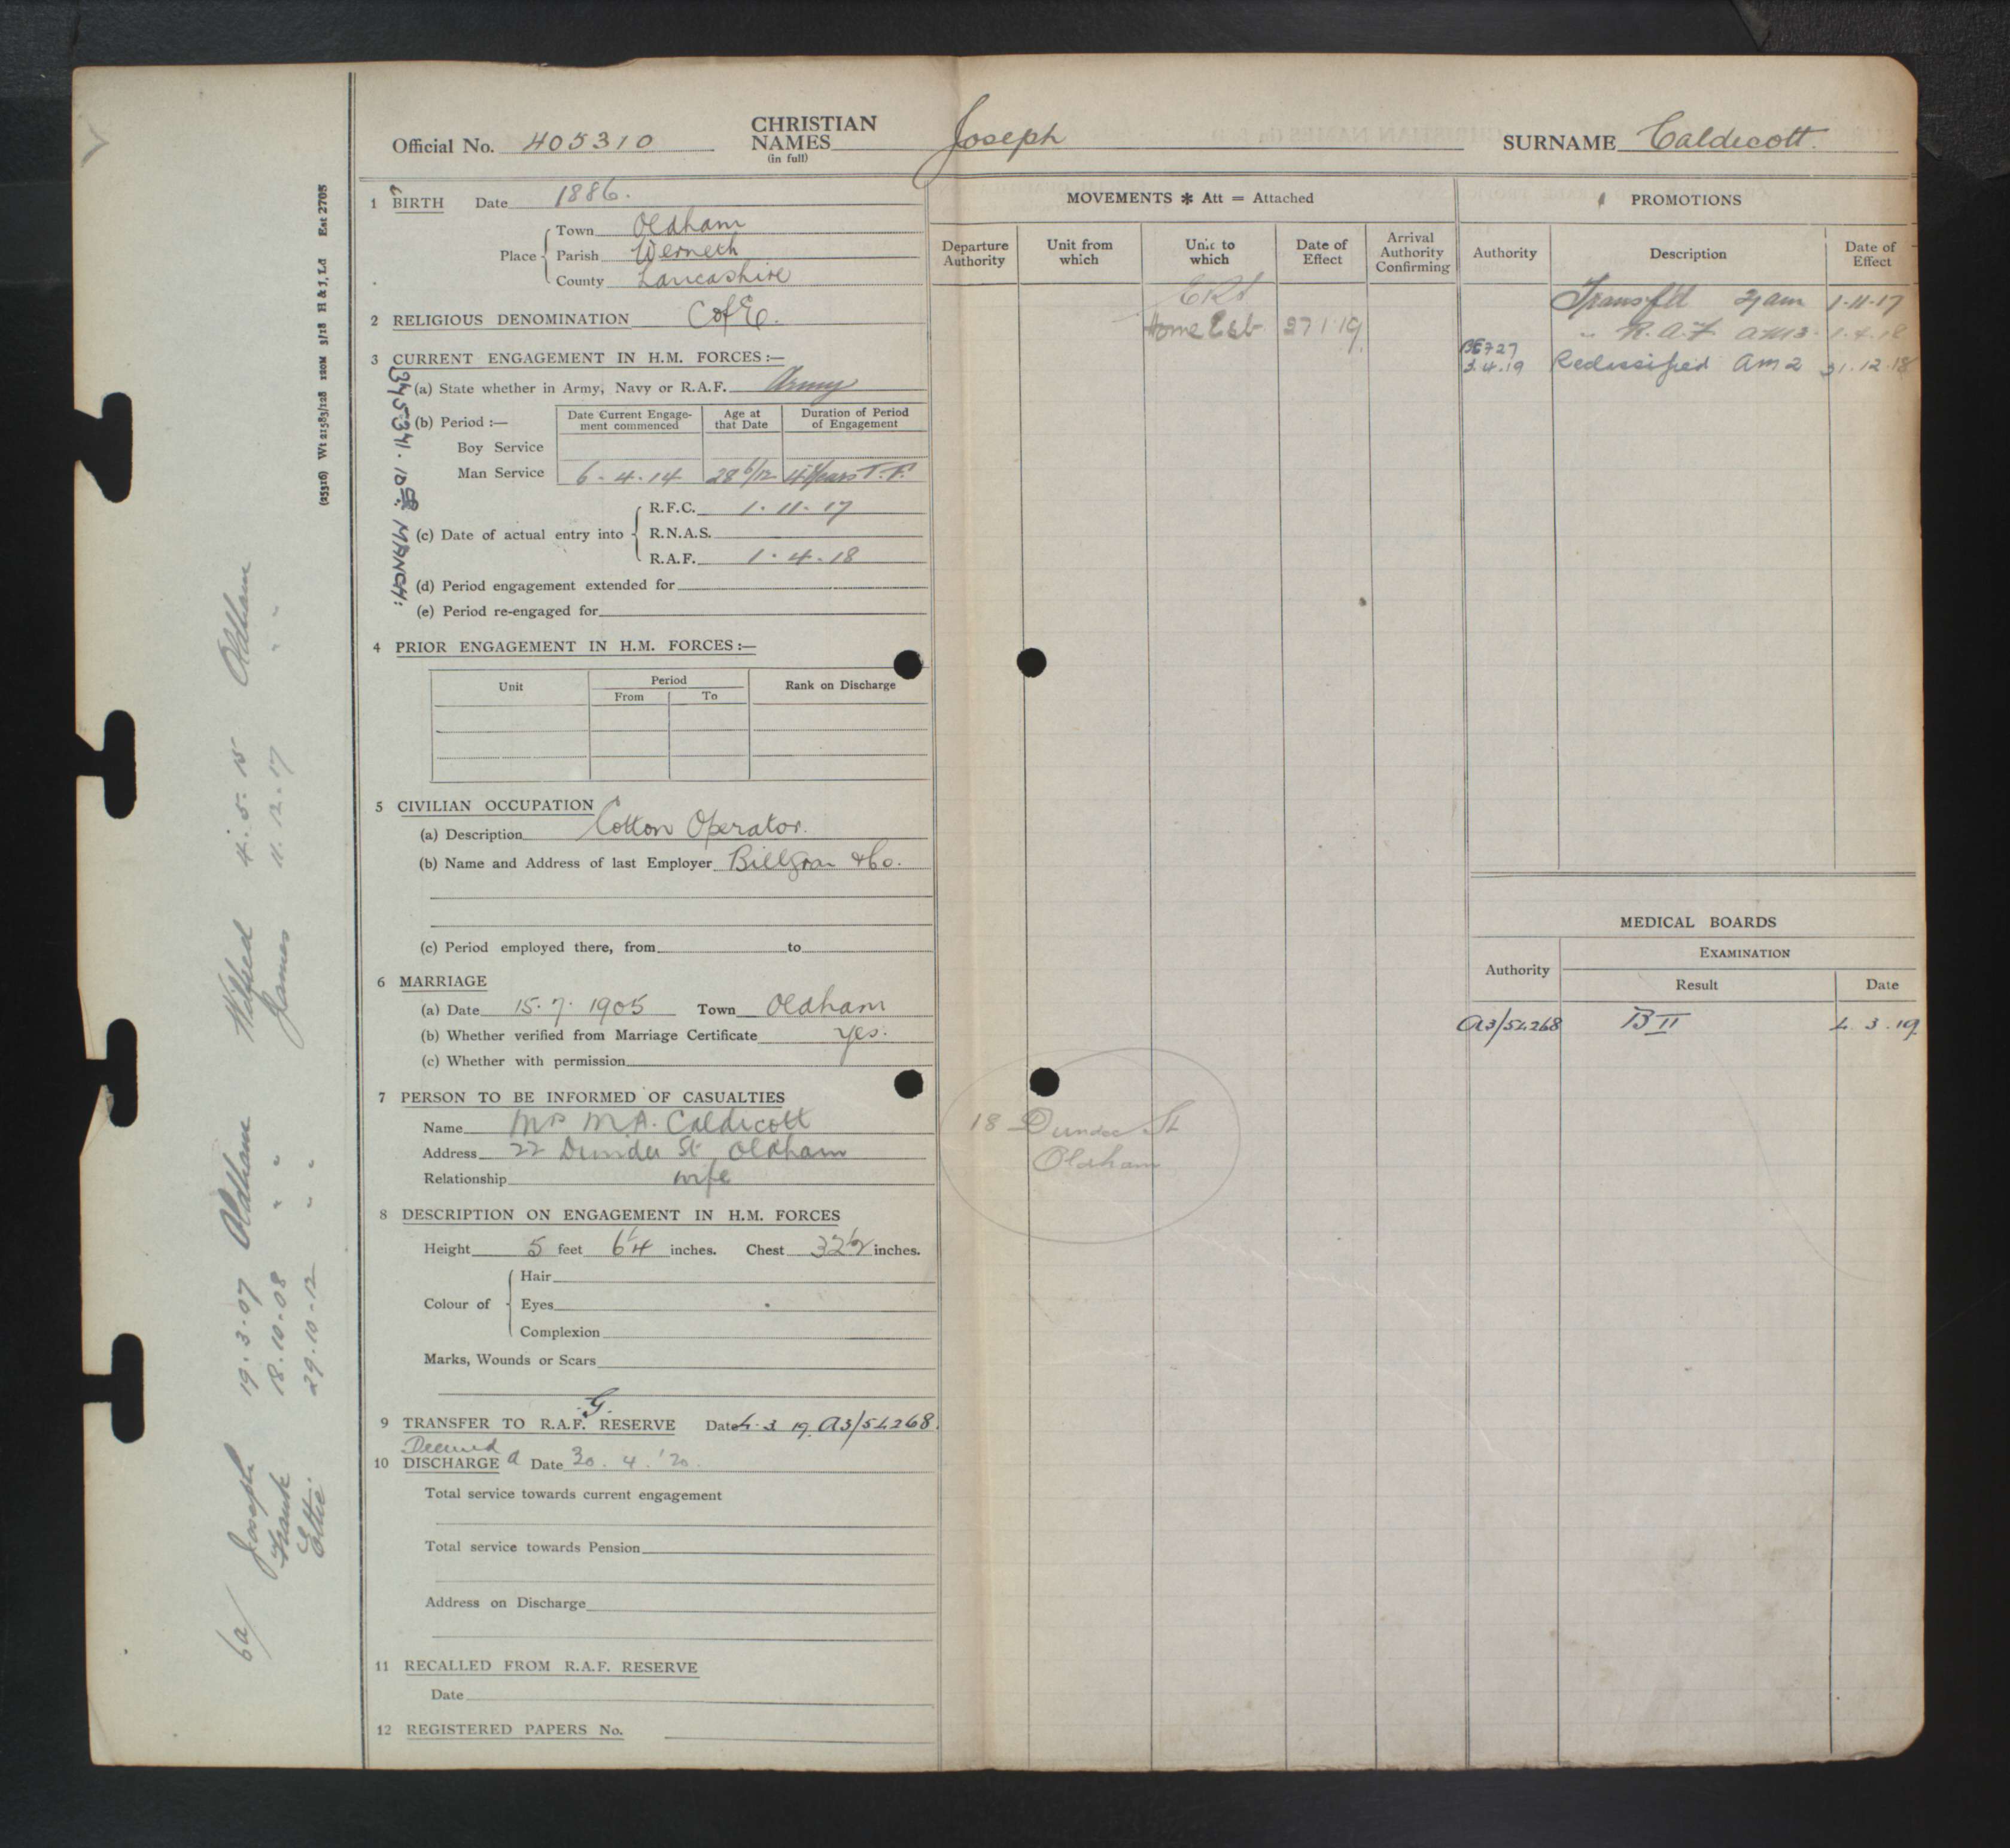 Official No. 405310 CHRISTIAN NAMES (in full) Joseph SURNAME Caldecott.
1 BIRTH Date 1886.
Place Town Oldham
Parish Werneth
County Lancashire
2 RELIGIOUS DENOMINATION C of E.
3 CURRENT ENGAGEMENT IN H.M. FORCES :—
(a) State whether in Army, Navy or R.A.F. Army
(b) Period :— Date Current Engagement commenced Age at that Date Duration of Period of Engagement
Boy Service
Man Service 6-4.14 28 6/12 4 years T.F.
(c) Date of actual entry into R.F.C. 1.11.17
R.N.A.S.
R.A.F. 1.4.18
(d) Period engagement extended for
(e) Period re-engaged for
4 PRIOR ENGAGEMENT IN H.M. FORCES :—
Unit Period Rank on Discharge
From To
5 CIVILIAN OCCUPATION
(a) Description Cotton Operator.
(b) Name and Address of last Employer & Co.
(c) Period employed there, from to
6 MARRIAGE
(a) Date 15.7.1905 Town Oldham
(b) Whether verified from Marriage Certificate yes.
(c) Whether with permission
7 PERSON TO BE INFORMED OF CASUALTIES
Name Mrs M.A. Caldicott
Address 22 Dundee St Oldham
Relationship wife
8 DESCRIPTION ON ENGAGEMENT IN H.M. FORCES
Height 5 feet 6¼ inches. Chest 32½ inches.
Colour of Hair
Eyes
Complexion
Marks, Wounds or Scars
G.
9 TRANSFER TO R.A.F. RESERVE Date 4.3.19. A3/54268.
Deemed
10 DISCHARGE a Date 30.4.'20.
Total service towards current engagement
Total service towards Pension
Address on Discharge
11 RECALLED FROM R.A.F. RESERVE
Date
12 REGISTERED PAPERS No.
MOVEMENTS * Att = Attached
Departure Authority Unit from which Unit to which Date of Effect Arrival Authority Confirming
Home Est 27 1 19
18 Dundee St
Oldham
PROMOTIONS
Authority Description Date of Effect
Transf'd 2 am 1-11-17
" R.A.F am3. 1.4.18
3.4.19 Reclassified Am 2 31.12.18
MEDICAL BOARDS
Authority EXAMINATION
Result Date
A3/54268 B II 4.3.19.
345341. 10th MANCH:
(25316) Wt 21583/128 120M 3/18 H & J, Ld Est 2705
6a/ Joseph 19.3.07 Oldham Wilfred 4.5.15 Oldham
Frank 18.10.08 " " James 11.12.17 " "
Ettie. 29.10-12 " "